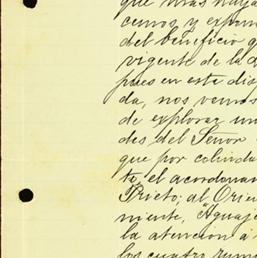 que mas haya
cemos, y expon
del beneficio q
vigente de la d
pues en este dis
da, nos vemos
de explorar un
des del Señor
que por colinda
te, el acordona
Prieto; al Orie
niente, "Aguaje
la atencion á
los cuatro rum